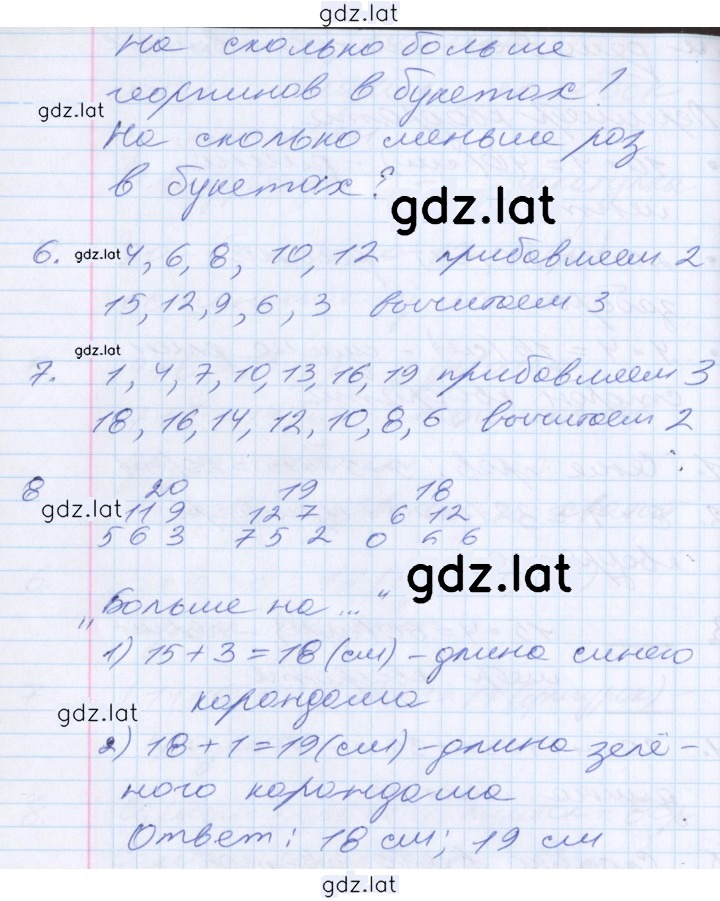 gdz.lat
На сколько больше
георгинов в букетах?
gdz.lat
На сколько меньше роз
в букетах?
gdz.lat
6. gdz.lat 4, 6, 8, 10, 12 прибавляем 2
15, 12, 9, 6, 3 вычитаем 3
gdz.lat
7. 1, 4, 7, 10, 13, 16, 19 прибавляем 3
18, 16, 14, 12, 10, 8, 6 вычитаем 2
8 20 19 18
gdz.lat 11 9 12 7 6 12
5 6 3 7 5 2 0 6 6
gdz.lat
„Больше на..."
1) 15 + 3 = 18 (см) – длина синего
карандаша
gdz.lat
2) 18 + 1 = 19 (см) – длина зелё-
ного карандаша
Ответ: 18 см; 19 см
gdz.lat